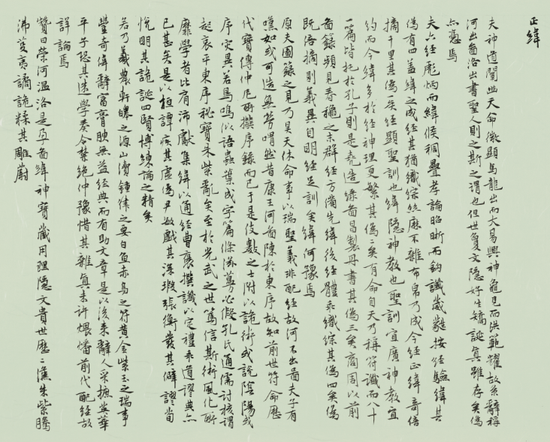 正緯
夫神道闡幽天命微顯馬龍出而大易興神龜見而洪範耀故系辭稱
河出圖洛出書聖人則之斯之謂也但世夐文隱好生矯誕真雖存矣偽
亦憑焉
夫六經彪炳而緯候稠疊孝論昭晰而鉤讖葳蕤按經驗緯其
偽有四蓋緯之成經其猶織綜絲麻不雜布帛乃成今經正緯奇倍
摘千里其偽矣經顯聖訓也緯隱神教也聖訓宜廣神教宜
約而今緯多於經神理更繁其偽二矣有命自天乃稱符讖而八十
一篇皆托於孔子則是堯造綠圖昌製丹書其偽三矣商周以前
圖籙頻見春秋之末群經方備先緯後經體乖織綜其偽四矣偽
既倍摘則義異自明經足訓矣緯何豫焉
原夫圖籙之見乃昊天休命事以瑞聖義非配經故河不出圖夫子有
嘆如或可造無勞喟然昔康王河圖陳於東序故知前世符命歷
代寶傳仲尼所撰序錄而已于是伎數之士附以詭術或說陰陽或
序災異若鳥鳴似語蟲葉成字篇條滋蔓必假孔氏通儒討核謂
起哀平東序秘寶朱紫亂矣至於光武之世篤信斯術風化所
靡學者比肩沛獻集緯以通經曹褒撰讖以定禮乖道謬典亦
已甚矣是以桓譚疾其虛偽尹敏戲其深瑕張衡發其僻謬荀
悅明其詭誕四賢博練論之精矣
若乃羲農軒皞之源山瀆鍾律之要白魚赤烏之符黃金紫玉之瑞事
豐奇偉辭富膏腴無益經典而有助文章是以後來辭人采摭英華
平子恐其迷學奏令禁絕仲豫惜其雜真未許煨燔前代配經故
詳論焉
贊曰榮河溫洛是孕圖緯神寶藏用理隱文貴世歷二漢朱紫騰
沸芟夷譎詭糅其雕蔚